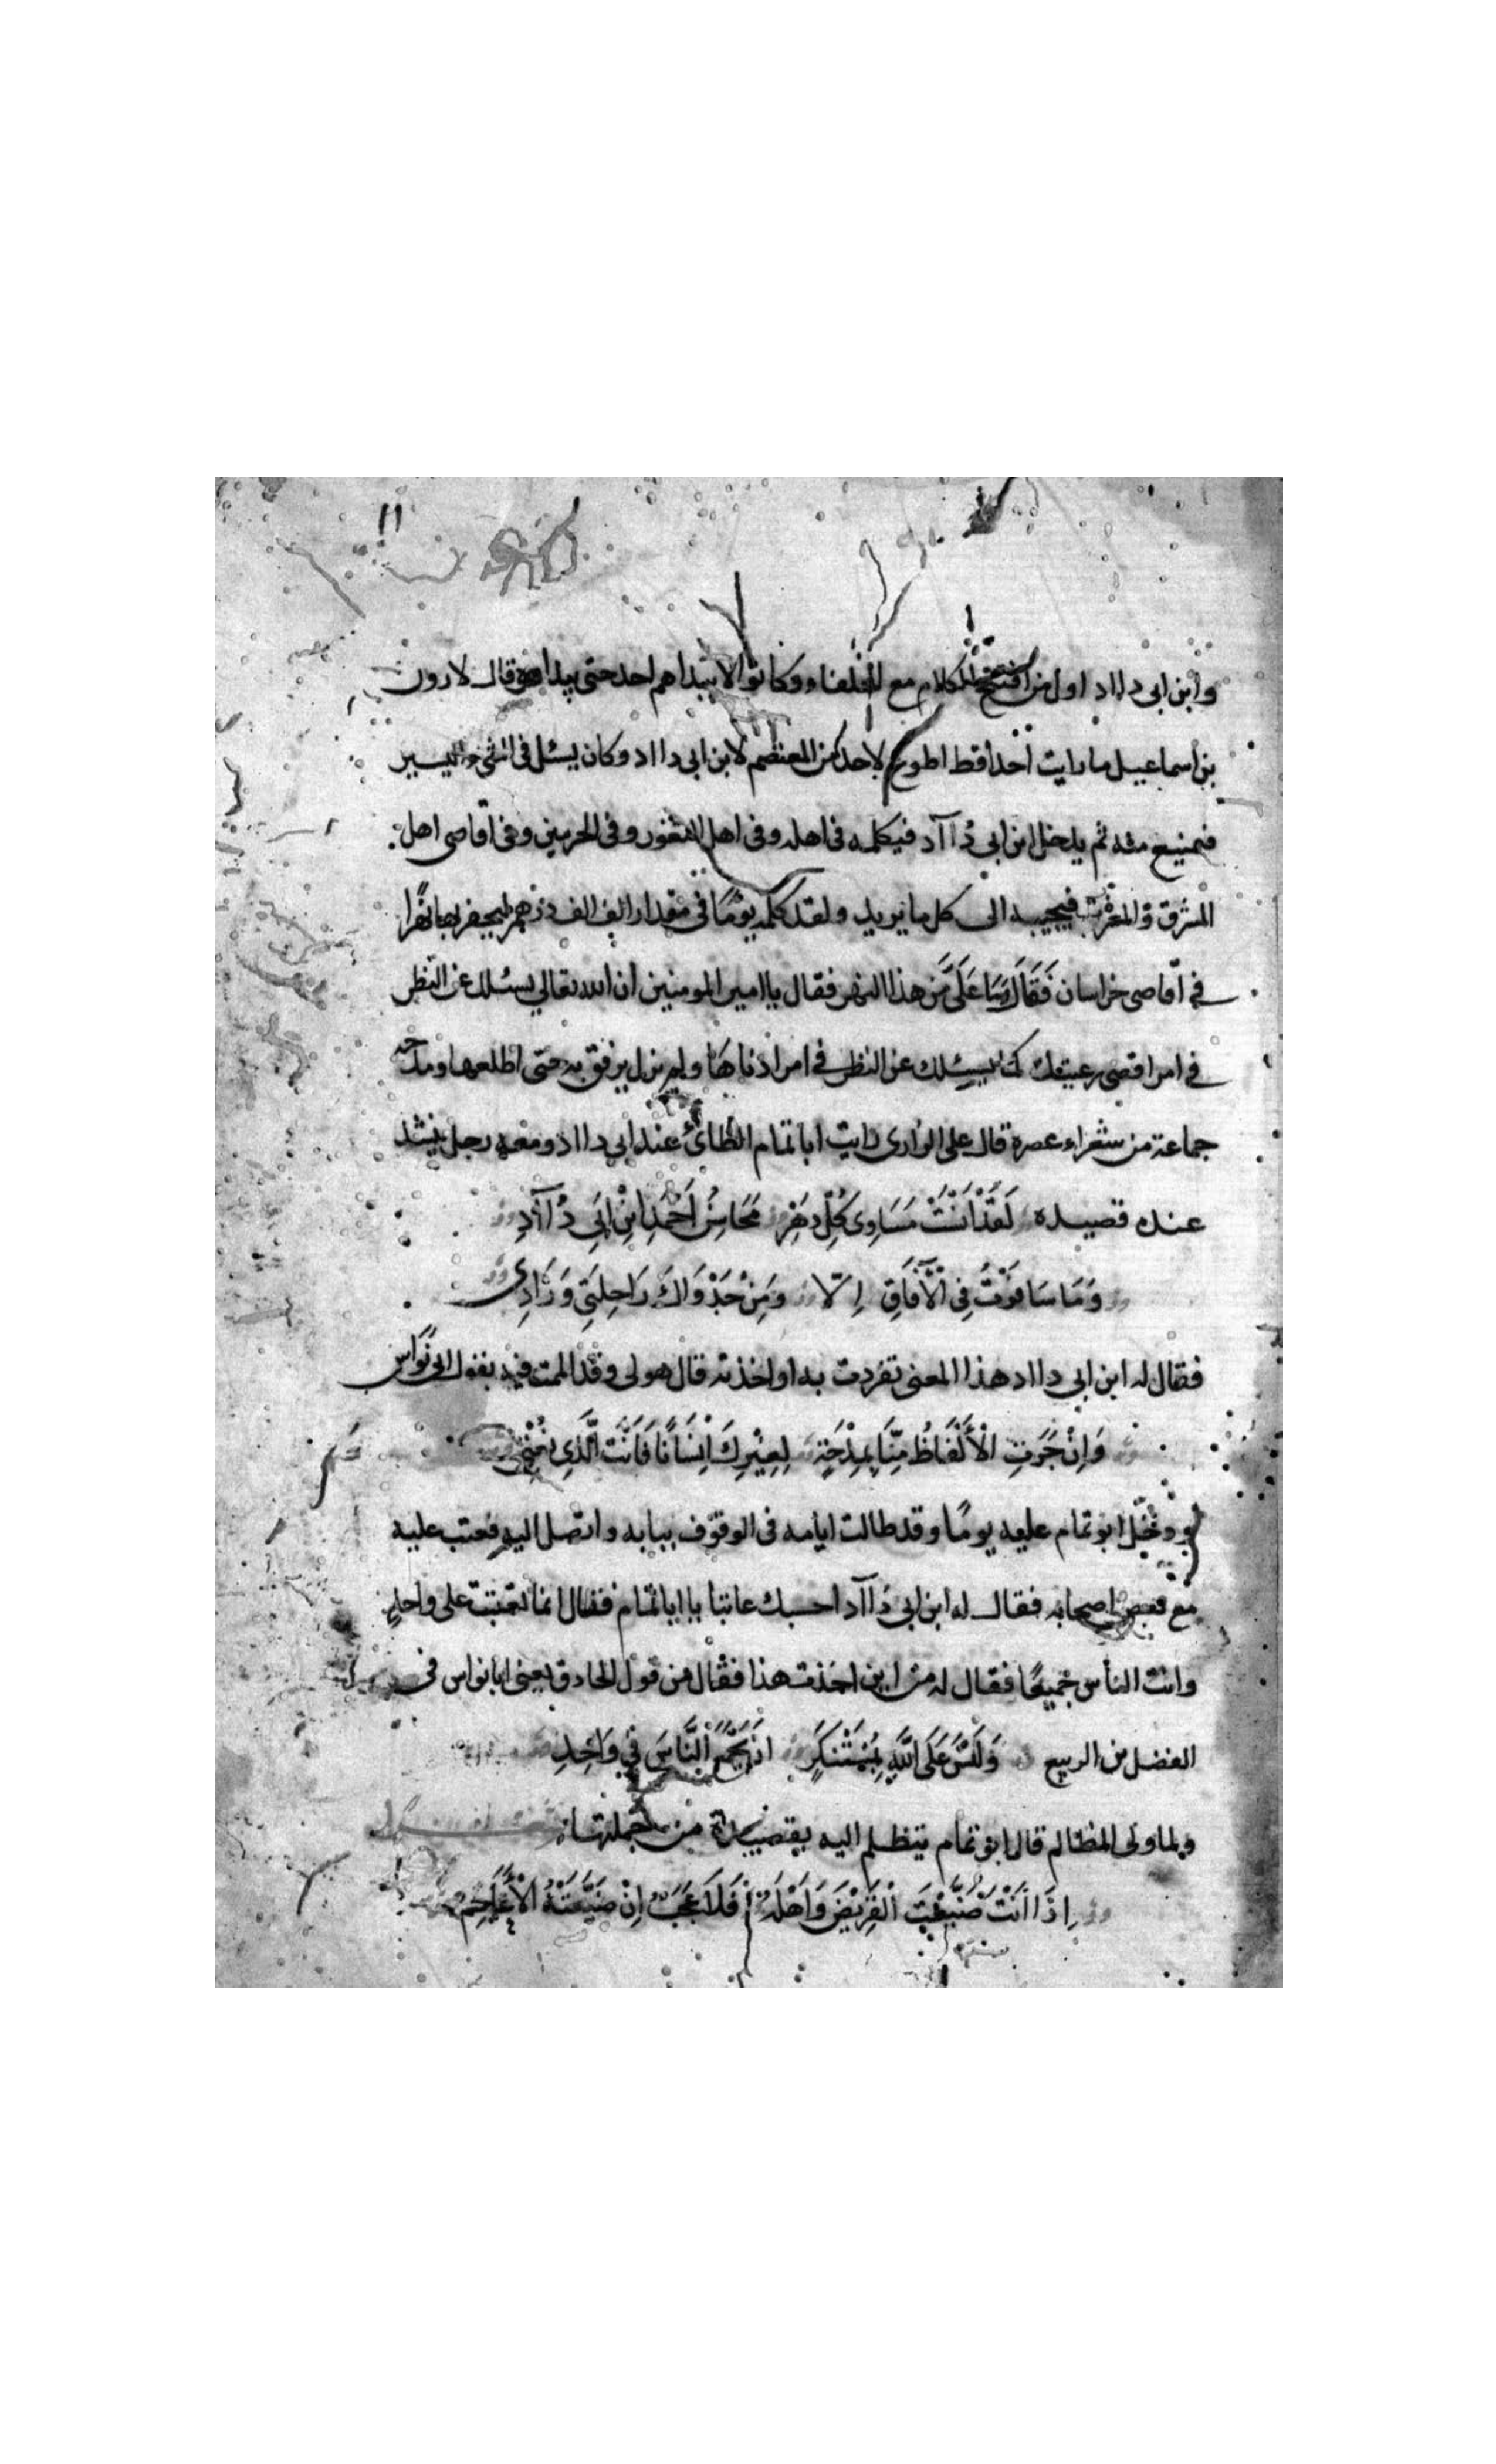 ١١
وابن ابى دااد اول من افتتح الكلام مع الخلفاء وكانوا لا يبداهم احد حتى يبداوه وقال لارون
بن اسماعيل ما رايت احدا قط اطوع لاحد من المعتصم لابن ابى دااد وكان يسئل فى الشئ اليسير
فيمتنع منه ثم يدخل ابن ابى دُاآد فيكلمه فى اهله وفى اهل الثغور وفى الحرمين وفى اقاصى اهل
المشرق والمغرب فيجيبه الى كل ما يريد ولقد كلمه يومًا فى مقدار الف الف درهم ليحفر بها نهرا
فى اقاصى خراسان فَقَالَ وَمَا عَلَىَّ مِن هذا النهر فقال يا امير المومنين ان الله تعالى يسئلك عن النظر
فى امر اقصى رعيتك كما يسئلك عن النظر فى امر ادناها ولم يزل يرفق به حتى اطلعها ومدحه
جماعة من شعراء عصره قال على الرازى رايت ابا تمام الطائ عند ابى دااد ومعه رجل ينشد
عنده قصيده لَقَدْ اَنْسَتْ مَسَاوِى كُلِّ دهْرٍ مَحَاسِنُ اَحْمَدَ ابْنِ اَبِى دُاآدِ
وَمَا سَافَرْتُ فِى الْآفَاقِ اِلّا وَمِنْ جَدْوَاكَ رَاحِلَتِى وَزَادِى
فقال له ابن ابى دااد هذا المعنى تفردت به او اخذته قال هو لى وقد الممت فيه بقول ابى نواس
وَاِنْ جَرَتِ الْأَلْفَاظُ مِنَّا بِمِدْحَةٍ لِغِيْرِكَ اِنْسَانًا فَاَنْتَ الَّذِى نَعْنِى
ودخل ابو تمام عليه يومًا وقد طالت ايامه فى الوقوف ببابه واتصل اليه فعتب عليه
مع بعض اصحابه فقال له ابن ابى دُاآد احسبك عاتبا يا ابا تمام فقال انما تعتب على واحدٍ
وانت الناس جميعًا فقال له من اين اخذت هذا فقال من قول الحاذق يعنى ابا نواس فى
الفضل بن الربيع وَلَيْسَ عَلَى اللَّهِ بِمُسْتَنْكَرٍ اَنْ يَجْمَعَ النَّاسَ فِى وَاحِدِ
ولما ولى المظالم قال ابو تمام يتظلم اليه بقصيدة من جملتها
اِذَا اَنْتَ ضَيَّعْتَ الْقَرِيْضَ وَاَهْلَهُ فَلَا عَجَبٌ اِنْ ضَيَّعَتْهُ الْاَعَاجِمُ